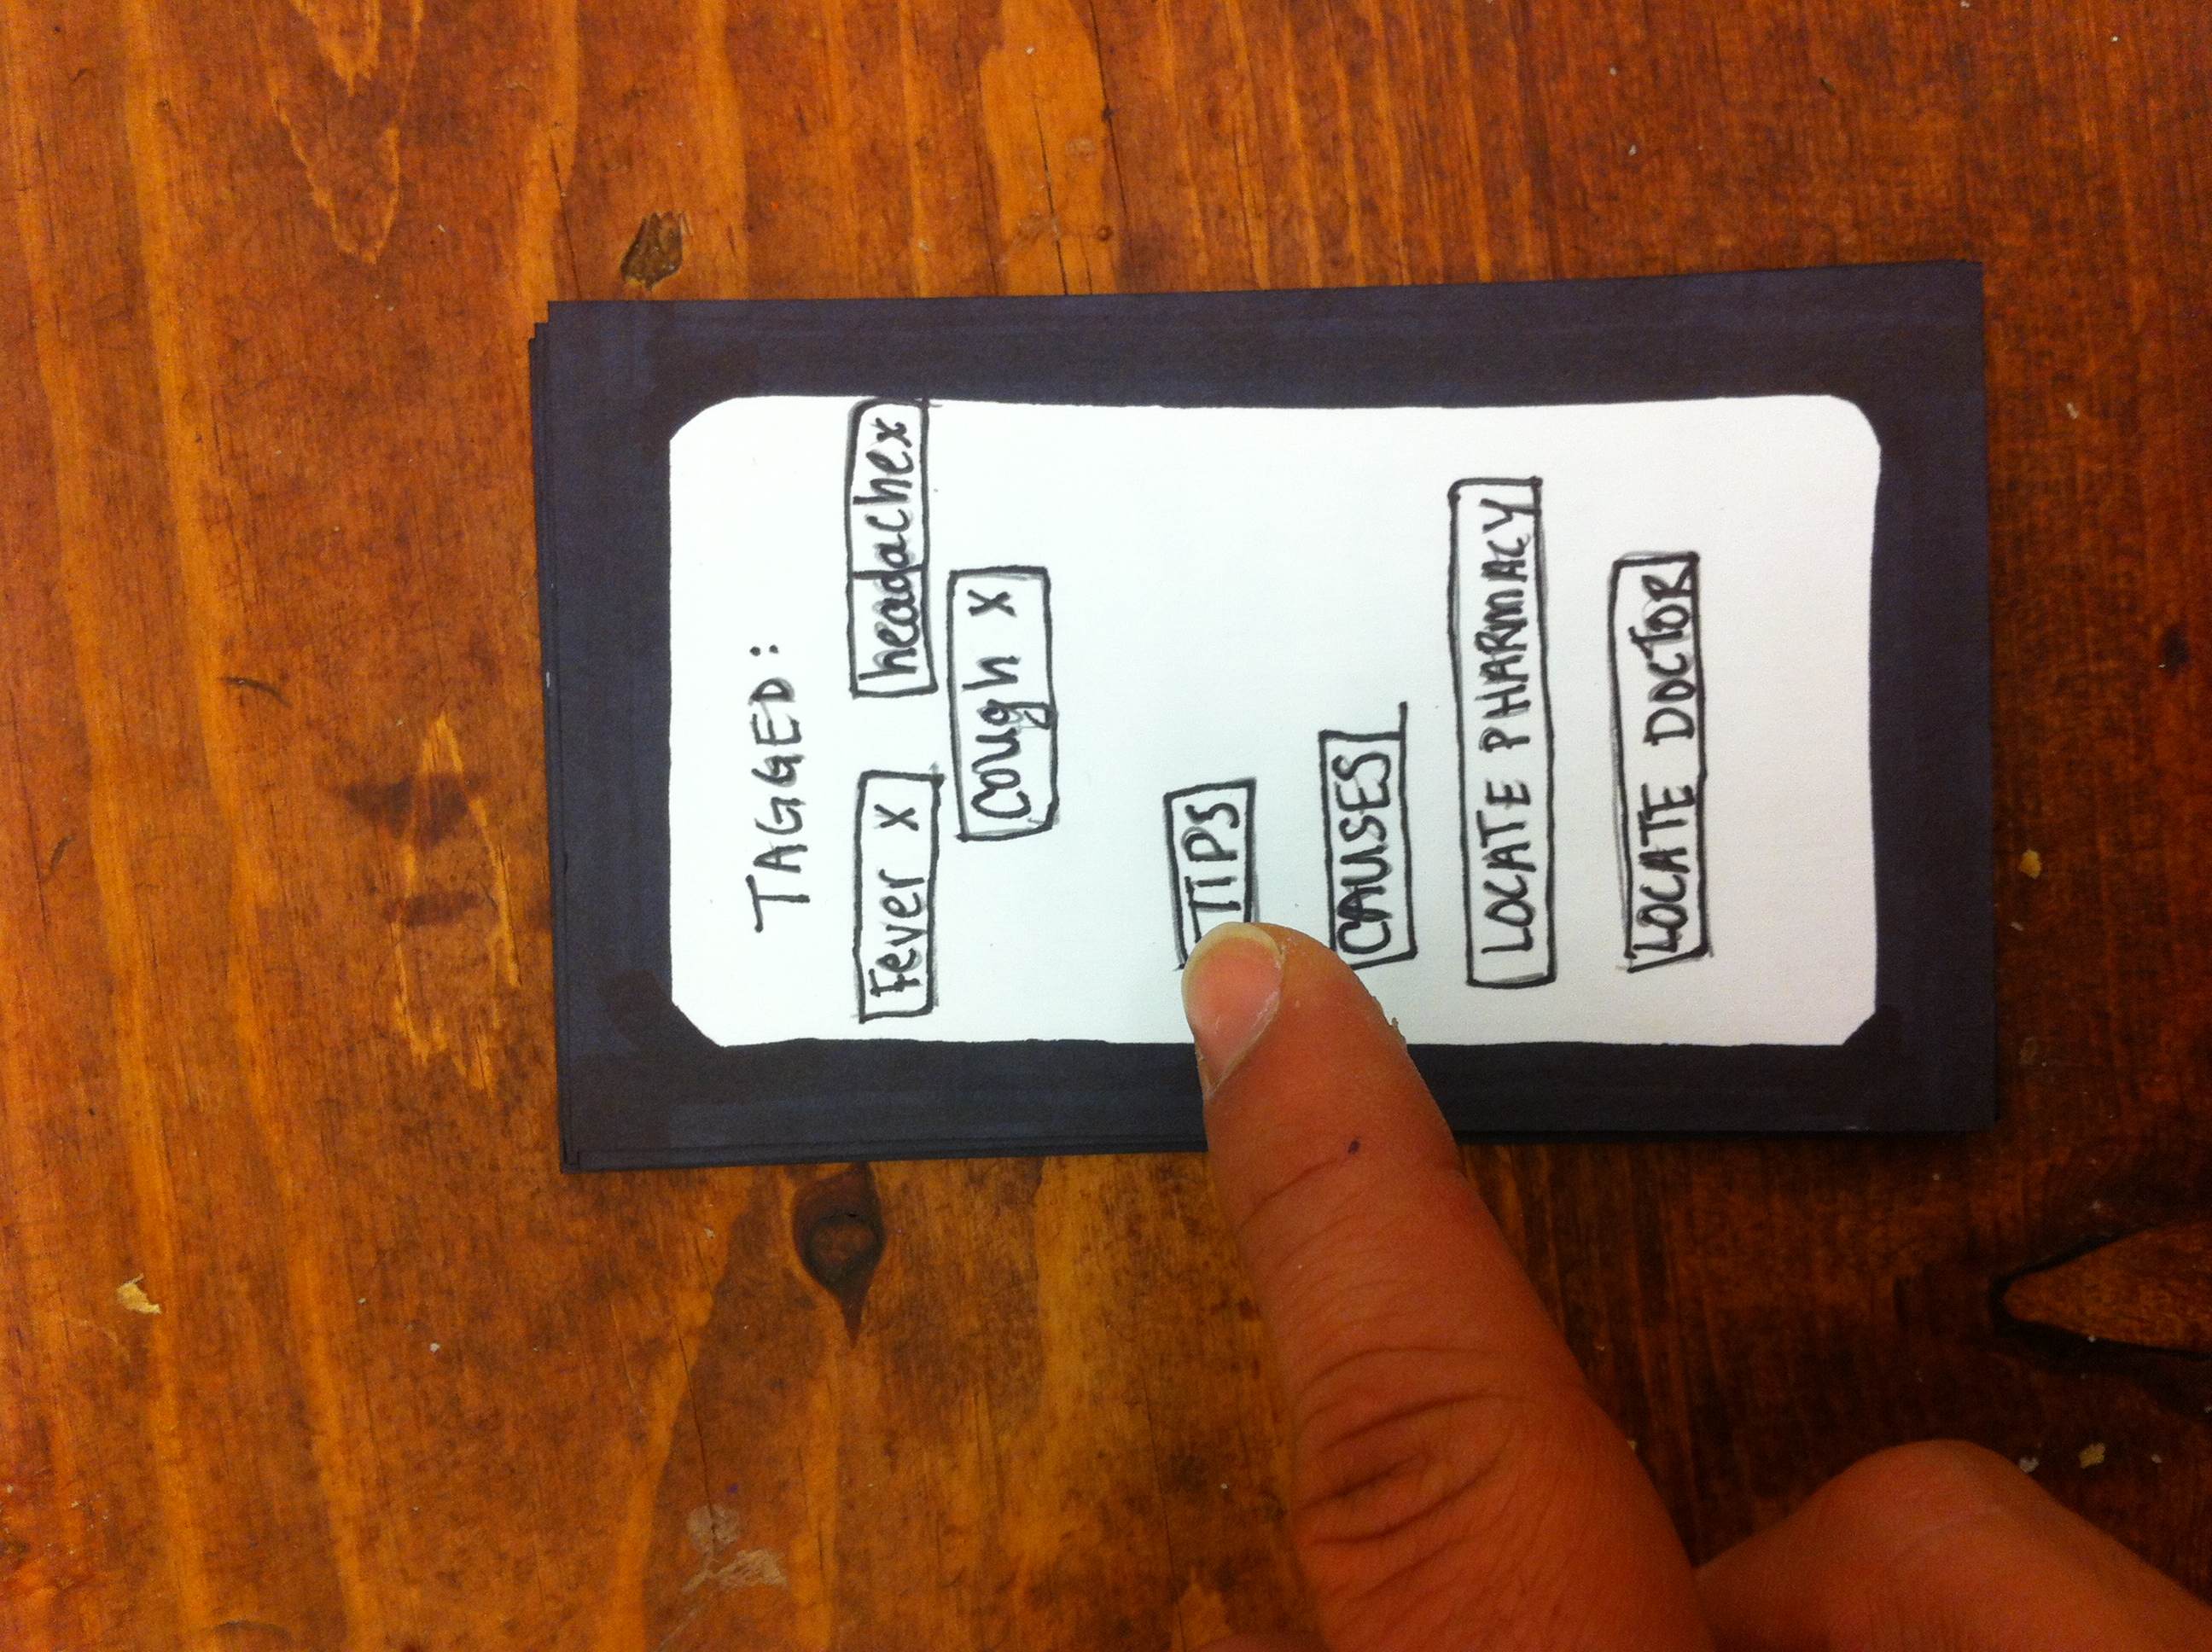 TAGGED:
Fever x headache x
cough x
TIPS
CAUSES
LOCATE PHARMACY
LOCATE DOCTOR